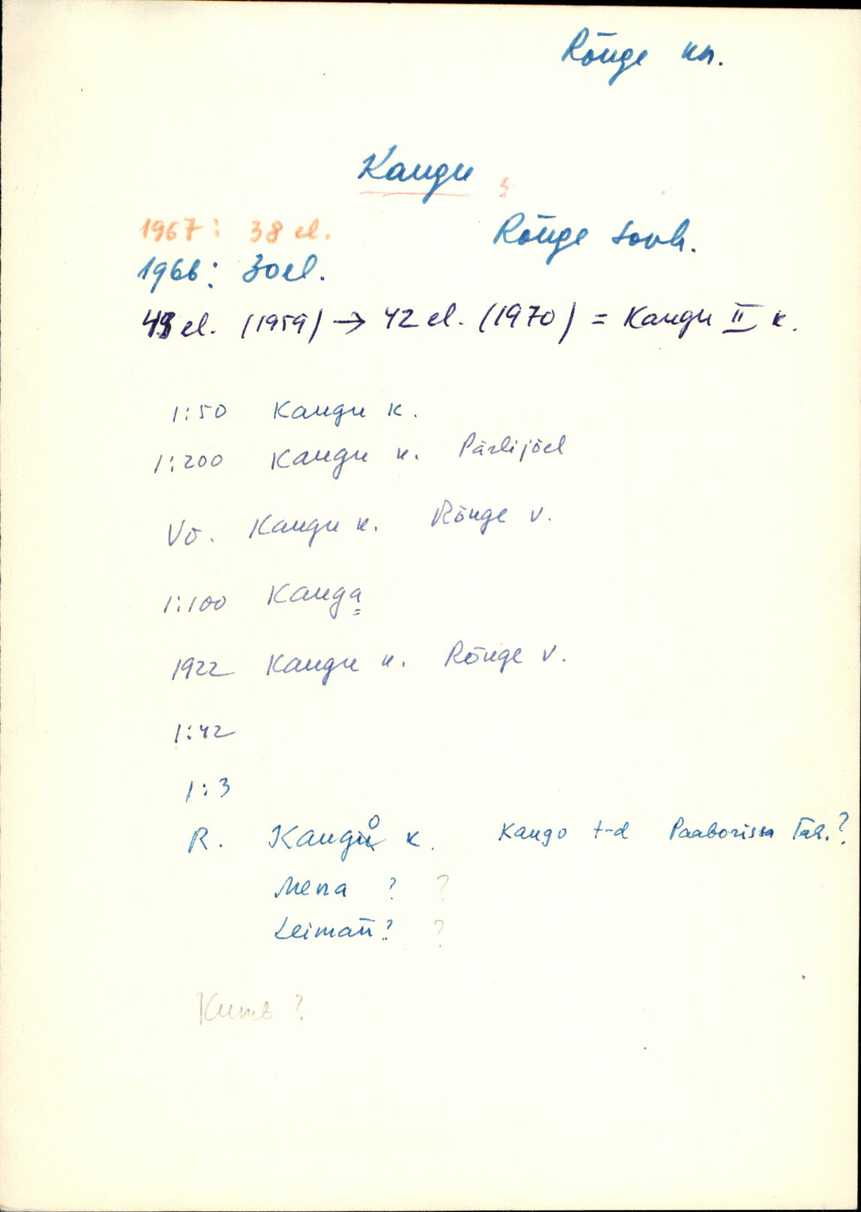 Rõuge kn.
Kaugu
1967: 38 el.
Rõuge sovh.
1966: 30 el.
43 el. (1959) → 42 el. (1970) = Kaugu II k.
1:50 Kaugu k.
1:200 Kaugu k. Pärlijõel
Võ. Kaugu k. Rõuge v.
1:100 Kauga
1922 Kaugu k. Rõuge v.
1:42
1:3
R. Kaugu k. Kaugo t-d Paaborissa Tah.?
Mena ? ?
Leiman? ?